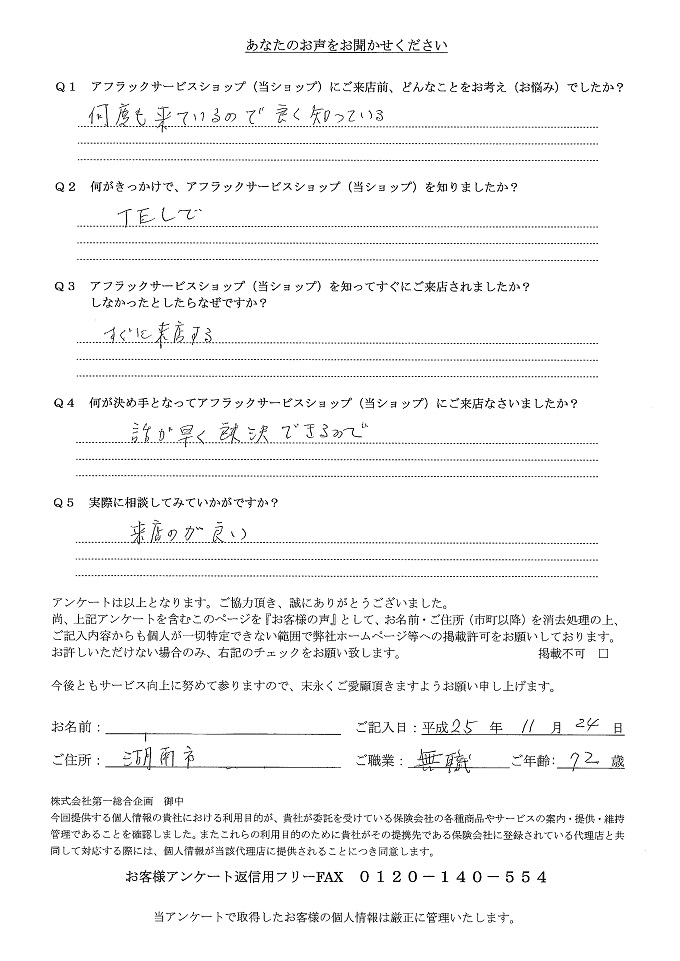 あなたのお声をお聞かせください
Q1 アフラックサービスショップ（当ショップ）にご来店前、どんなことをお考え（お悩み）でしたか？
何度も来ているので良く知っている
Q2 何がきっかけで、アフラックサービスショップ（当ショップ）を知りましたか？
TELで
Q3 アフラックサービスショップ（当ショップ）を知ってすぐにご来店されましたか？
しなかったとしたらなぜですか？
すぐに来店する
Q4 何が決め手となってアフラックサービスショップ（当ショップ）にご来店なさいましたか？
話が早く 決できるので
Q5 実際に相談してみていかがですか？
来店のが良い
アンケートは以上となります。ご協力頂き、誠にありがとうございました。
尚、上記アンケートを含むこのページを『お客様の声』として、お名前・ご住所（市町以降）を消去処理の上、
ご記入内容からも個人が一切特定できない範囲で弊社ホームページ等への掲載許可をお願いしております。
お許しいただけない場合のみ、右記のチェックをお願い致します。 掲載不可 □
今後ともサービス向上に努めて参りますので、末永くご愛顧頂きますようお願い申し上げます。
お名前： ご記入日：平成25年 11月 24日
ご住所： 湖南市 ご職業：無職 ご年齢：72歳
株式会社第一総合企画 御中
今回提供する個人情報の貴社における利用目的が、貴社が委託を受けている保険会社の各種商品やサービスの案内・提供・維持
管理であることを確認しました。またこれらの利用目的のために貴社がその提携先である保険会社に登録されている代理店と共
同して対応する際には、個人情報が当該代理店に提供されることにつき同意します。
お客様アンケート返信用フリーFAX ０１２０－１４０－５５４
当アンケートで取得したお客様の個人情報は厳正に管理いたします。